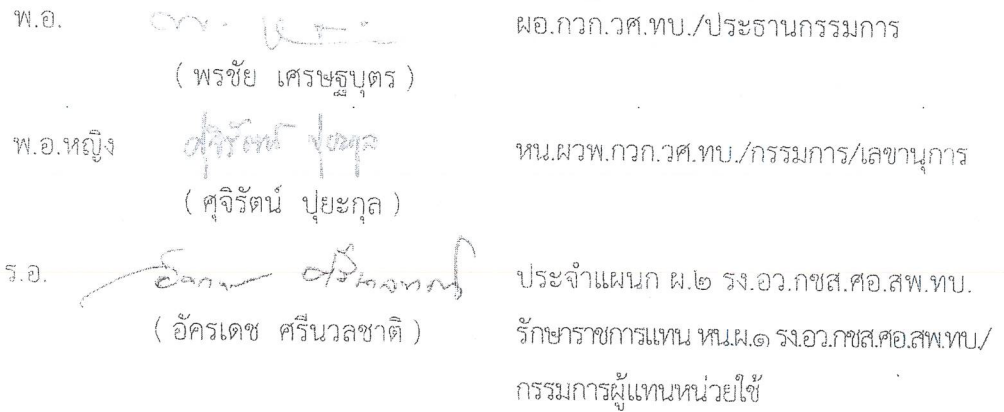 พ.อ. ผอ.กวก.วศ.ทบ./ประธานกรรมการ
( พรชัย เศรษฐบุตร )
พ.อ.หญิง ศุจิรัตน์ ปุยะกุล หน.ผวพ.กวก.วศ.ทบ./กรรมการ/เลขานุการ
( ศุจิรัตน์ ปุยะกุล )
ร.อ. ประจำแผนก ผ.๒ รง.อว.กซส.ศอ.สพ.ทบ.
( อัครเดช ศรีนวลชาติ ) รักษาราชการแทน หน.ผ.๑ รง.อว.กซส.ศอ.สพ.ทบ./
กรรมการผู้แทนหน่วยใช้